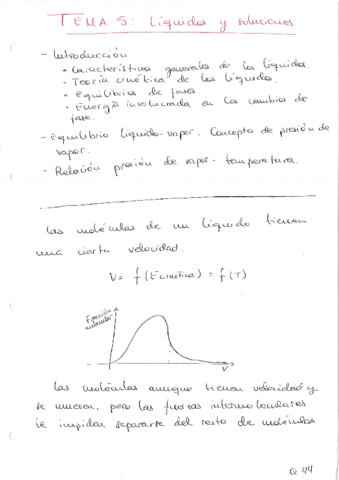 TEMA 5: Líquidos y soluciones
- Introducción
• Características generales de los líquidos.
• Teoría cinética de los líquidos.
• Equilibrios de fases.
• Energía involucrada en los cambios de
fase.
- Equilibrio líquido-vapor. Concepto de presión de
vapor.
- Relación presión de vapor - temperatura.
Las moléculas de un líquido tienen
una cierta velocidad.
V = f(E cinética) = f(T)
Fracción
moléculas
V
Las moléculas aunque tienen velocidad y
se mueven, pero las fuerzas intermoleculares
le impiden separarse del resto de moléculas
Q 44